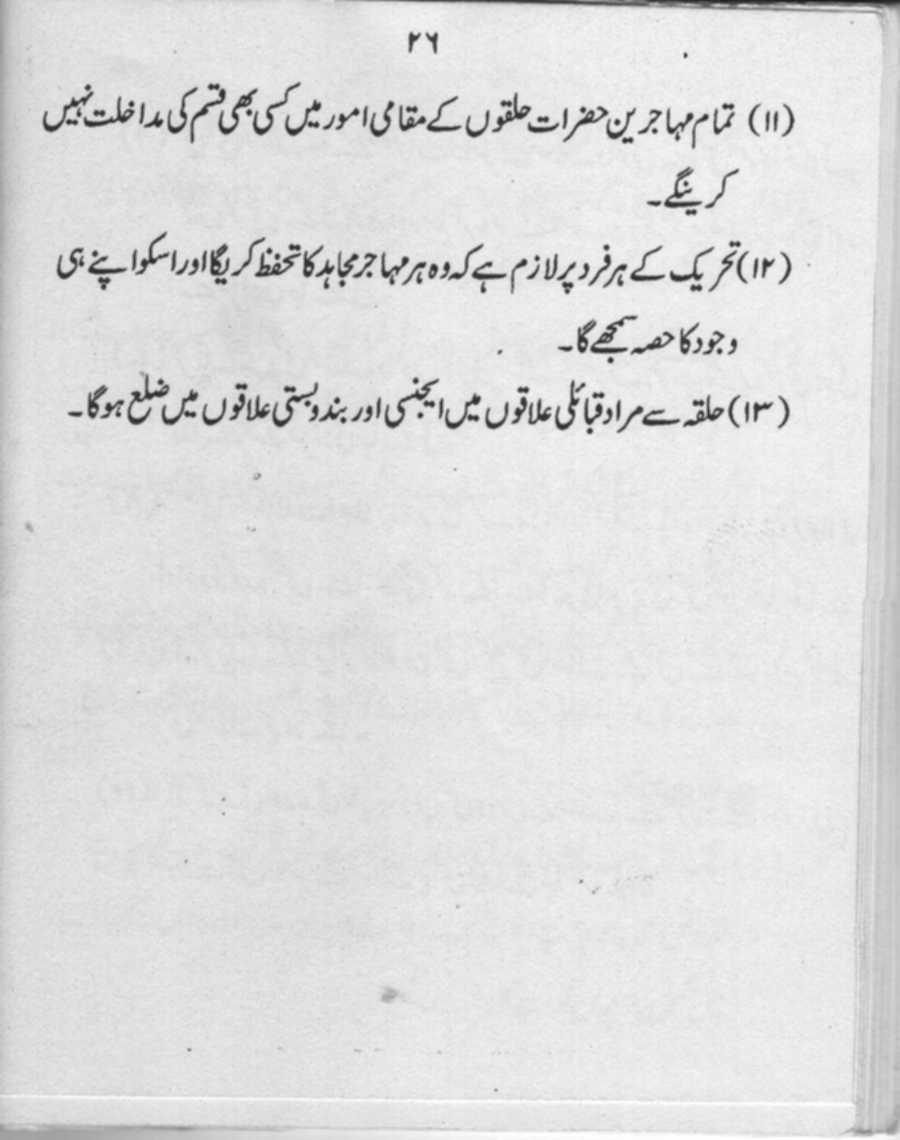 ۲۶
(۱۱) تمام مہاجرین حضرات حلقوں کے مقامی امور میں کسی بھی قسم کی مداخلت نہیں
کرینگے۔
(۱۲) تحریک کے ہر فرد پر لازم ہے کہ وہ ہر مہاجر مجاہد کا تحفظ کریگا اور اسکو اپنے ہی
وجود کا حصہ سمجھے گا۔
(۱۳) حلقہ سے مراد قبائلی علاقوں میں ایجنسی اور بندوبستی علاقوں میں ضلع ہوگا۔